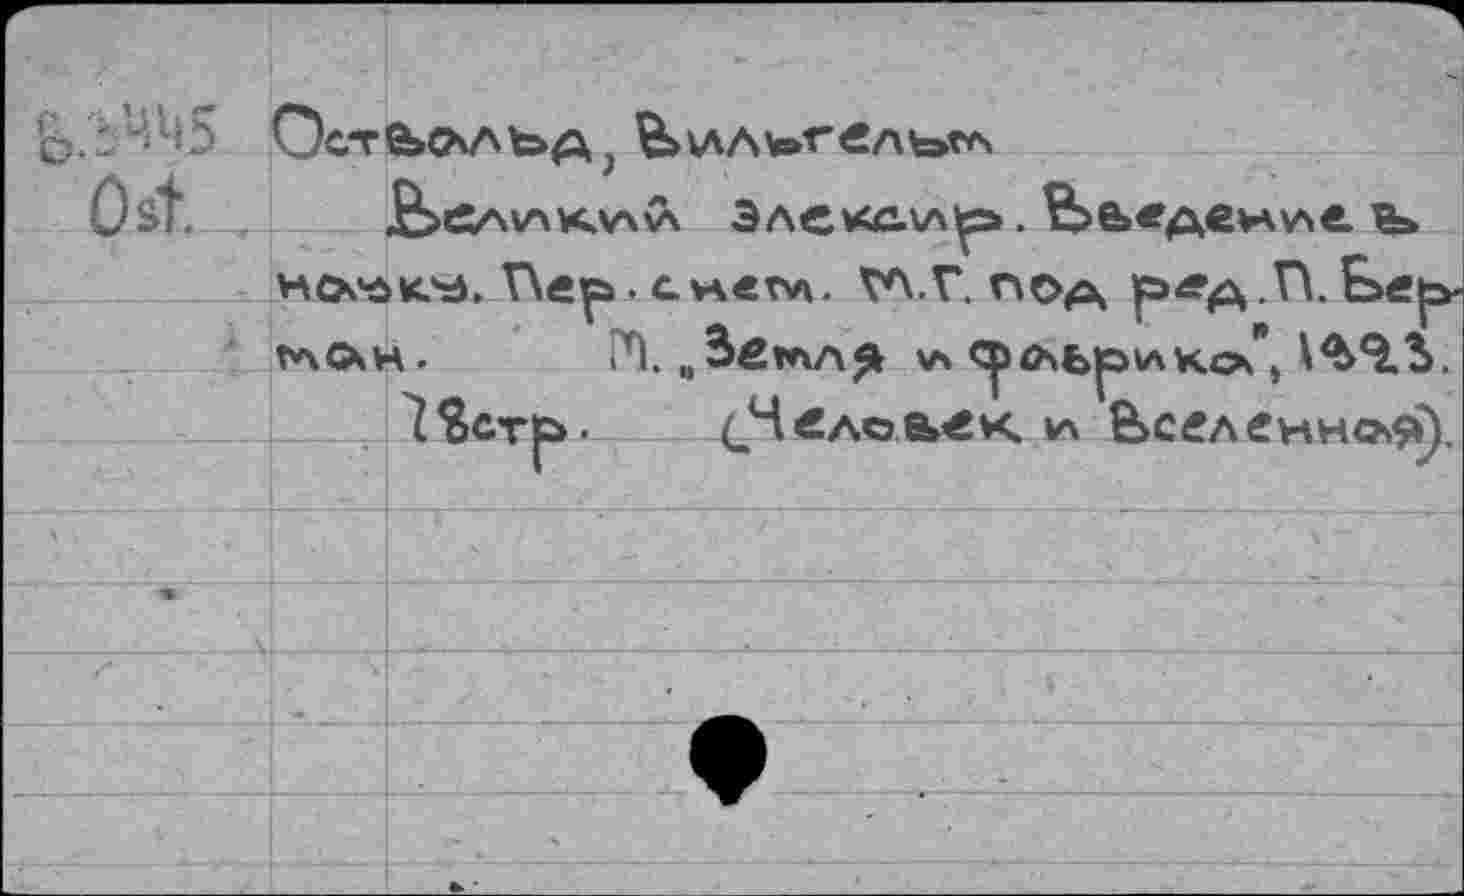 Оствальд, Вильгельм
Ost. Великий элексир. Введение в
науку. Пер. с нем. М.Г. под ред. П. Бер-
ман. М. „Земля и фабрика", 1923.
78стр. (Человек и Вселенная).